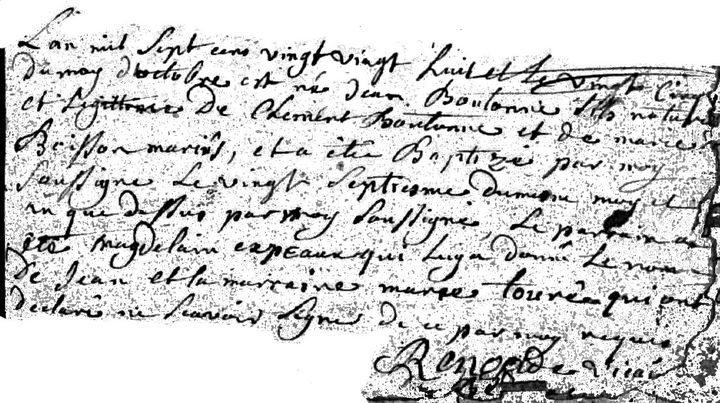 Lan mil Sept cens vingt vingt huit et Le vingt Cinq
du moy doctobre est né Jean Boutonne fils nature
et Legittime De Clement Boutonne et de marie
Boisson mariés, et a etée Baptizé par moy
soussigné Le vingt Septiesme du mesme moy et
an que dessus par moy soussigné, Le parrain a
eté magdelain qui Luy a donné Le nom
de Jean et la marraine marie tourée qui ont
declaré ne scavoir signé de ce par moy requis